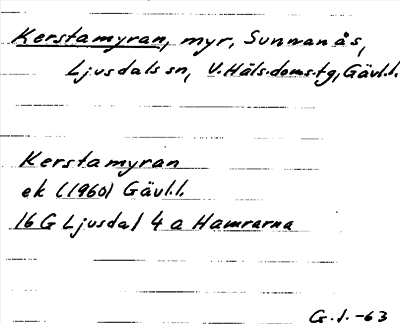 Kerstamyran, myr, Sunnanås,
Ljusdals sn, V. Häls. doms.tg, Gävl.l.
Kerstamyran
ek (1960) Gävl.l.
16 G Ljusdal 4 a Hamrarna
G.J. -63